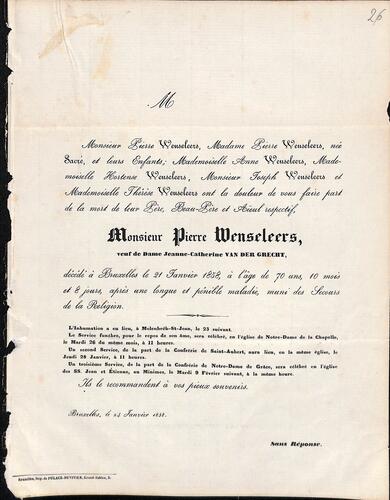 26
M
Monsieur Pierre Wenseleers, Madame Pierre Wenseleers, née
Sacré, et leurs Enfants; Mademoiselle Anne Wenseleers, Made-
moiselle Hortense Wenseleers, Monsieur Joseph Wenseleers et
Mademoiselle Thérèse Wenseleers ont la douleur de vous faire part
de la mort de leur Père, Beau-Père et Aïeul respectif,
Monsieur Pierre Wenseleers,
veuf de Dame Jeanne-Catherine VAN DER GRECHT,
décédé à Bruxelles le 21 Janvier 1858, à l'âge de 70 ans, 10 mois
et 8 jours, après une longue et pénible maladie, muni des Secours
de la Religion.
L'Inhumation a eu lieu, à Molenbeek-St-Jean, le 23 suivant.
Le Service funèbre, pour le repos de son âme, sera célébré, en l'église de Notre-Dame de la Chapelle,
le Mardi 26 du même mois, à 11 heures.
Un second Service, de la part de la Confrérie de Saint-Aubert, aura lieu, en la même église, le
Jeudi 28 Janvier, à 11 heures.
Un troisième Service, de la part de la Confrérie de Notre-Dame de Grâce, sera célébré en l'église
des SS. Jean et Étienne, au Minimes, le Mardi 9 Février suivant, à la même heure.
Ils le recommandent à vos pieux souvenirs.
Bruxelles, le 24 Janvier 1858.
Sans Réponse.
Bruxelles, Imp. de